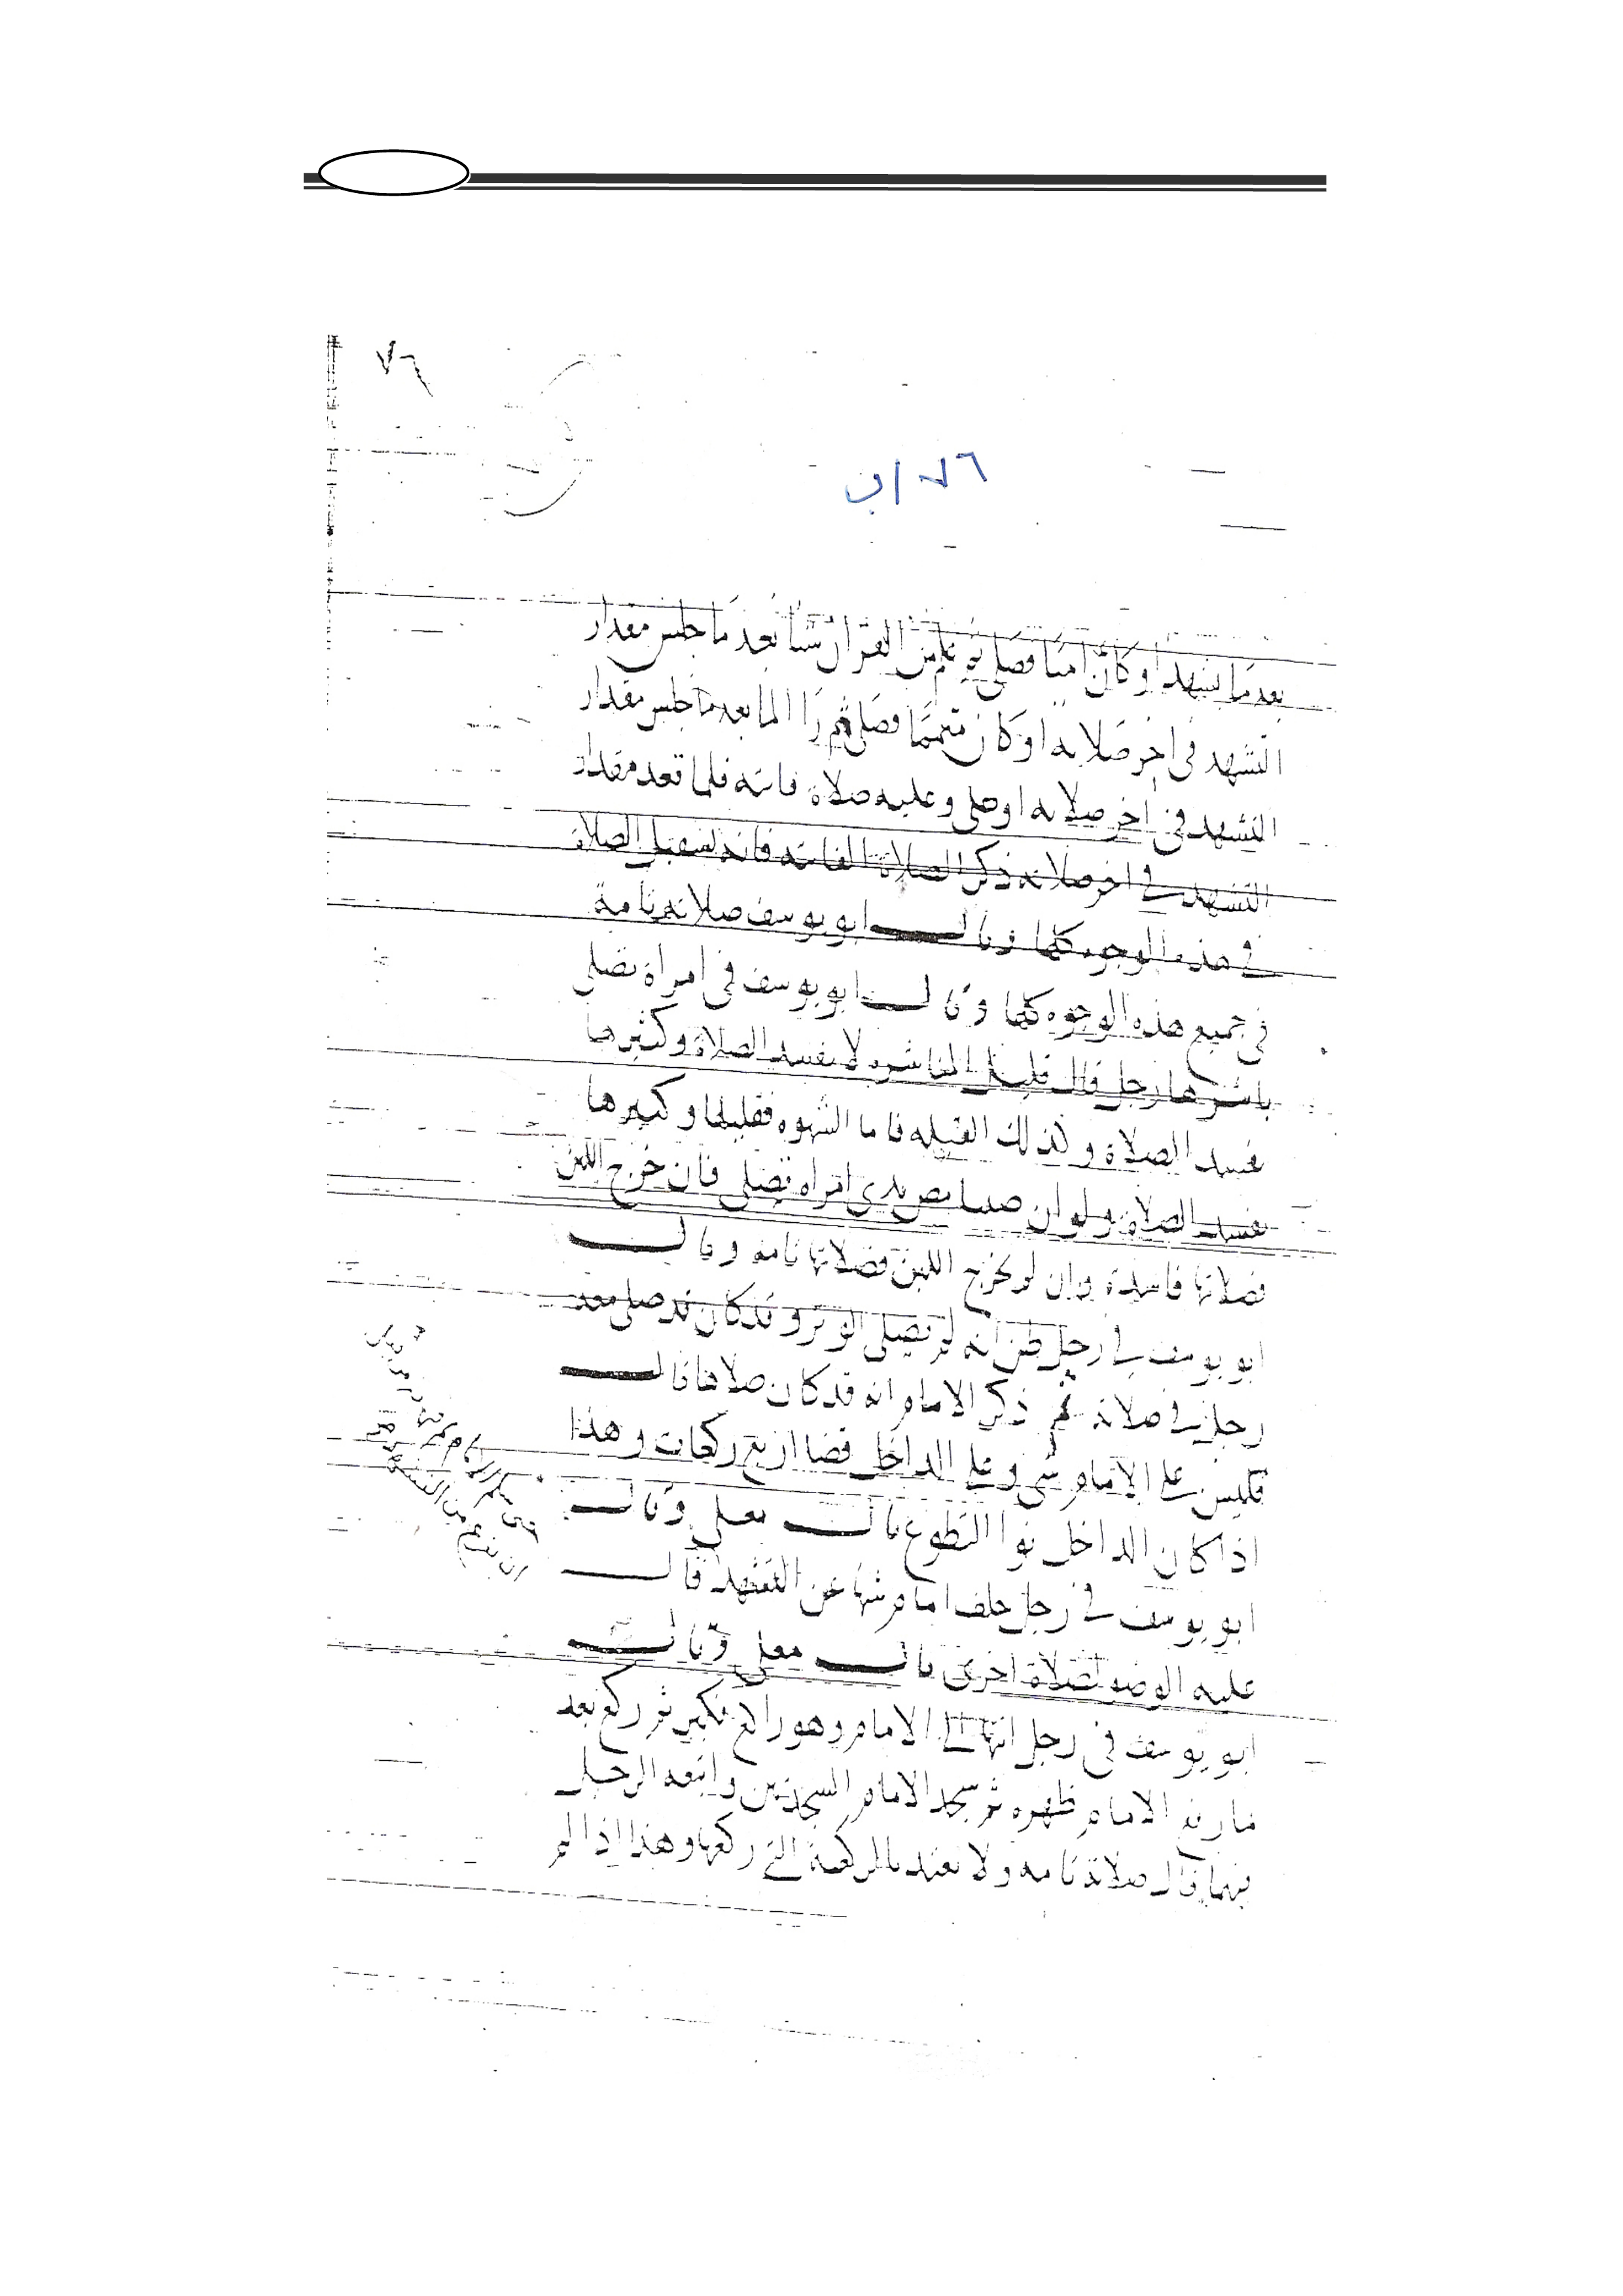 ٧٦
٧٦/ب
بعد ما تشهد او كان اميا فصلى ثم علم من القران شيا بعد ما جلس مقدار
التشهد في اخر صلاته او كان متيمما فصلى ثم را الما بعد ما جلس مقدار
التشهد في اخر صلاته او صلى وعليه صلاة فاتته فلما قعد مقدار
التشهد في اخر صلاته ذكر الصلاة الفاتته فانه يستقبل الصلاة
في هذه الوجوه كلها وقال ابو يوسف صلاته تامة
في جميع هذه الوجوه كلها وقال ابو يوسف في امراة تصلي
باشرها رجل قال قليل المباشره لا تفسد الصلاة وكثيرها
تفسد الصلاة وكذلك القبله فاما الشهوه فقليلها وكثيرها
تفسد الصلاة ولو ان صبيا مص ثدي امراه تصلي فان خرج اللبن
فصلاتها فاسدة وان لم يخرج اللبن فصلاتها تامه وقال
ابو يوسف في رجل ظن انه لم يصلي الوتر وقد كان قد صلى معه
رجل في صلاته ثم ذكر الامام انه قد كان صلاها قال
فليس على الامام شي وعلى الداخل قضا اربع ركعات وهذا
اذا كان الداخل نوا التطوع قال معلى وقال
ابو يوسف في رجل خلف امام سها عن التشهد قال
عليه الوضو لصلاة اخرى قال معلى وقال
ابو يوسف في رجل انتها الى الامام وهو راكع فكبر ثم ركع بعد
ما رفع الامام ظهره ثم سجد الامام السجدتين واتبعه الرجل
فيهما قال صلاته تامه ولا يعتد بالركعة التي ركعها وهذا اذا لم